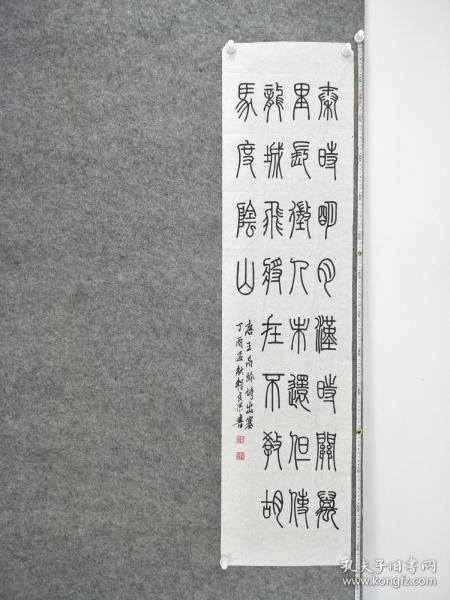 秦時明月漢時關萬
里長徵人未還但使
龍城飛將在不教胡
馬度陰山
唐王昌龄诗出塞
丁酉孟秋書
孔夫子旧书网
www.kongfz.com